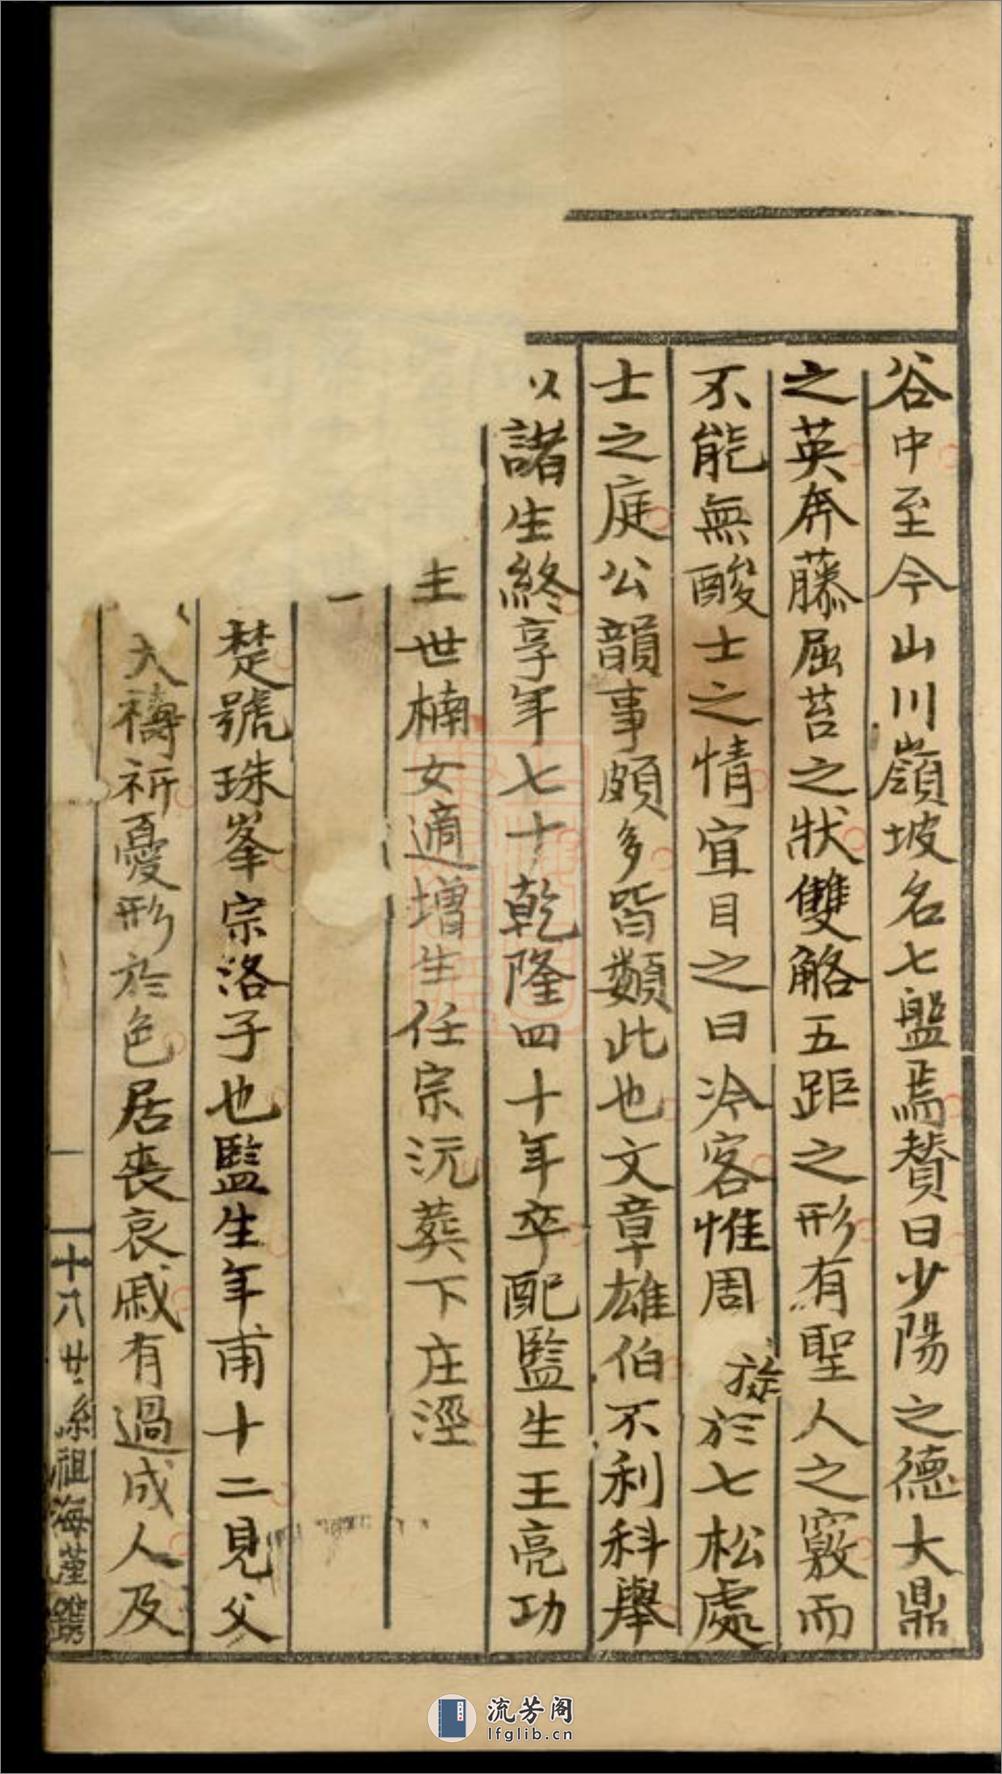 谷中至今山川嶺坡名七盤焉贊曰少陽之德大鼎
之英奔藤屈苔之狀雙觡五距之形有聖人之竅而
不能無酸士之情宜目之曰冷客惟周旋於七松處
士之庭公韻事頗多皆類此也文章雄伯不利科舉
以諸生終享年七十乾隆四十年卒配監生王亮功
主世楠女適增生任宗沅葬下庄涇
一
楚號珠峯宗洛子也監生年甫十二見父
大禱祈憂形於色居喪哀戚有過成人及
十八廿系祖海蓳鐫
流芳阁
lfglib.cn